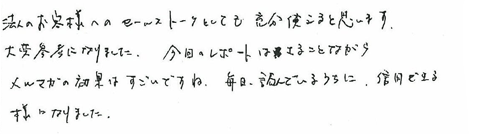 法人のお客様へのセールストークとしても充分使えると思います。
大変参考になりました。今回のレポートはさることながら
メルマガの効果はすごいですね。毎日、読んでいるうちに、信用できる
様になりました。